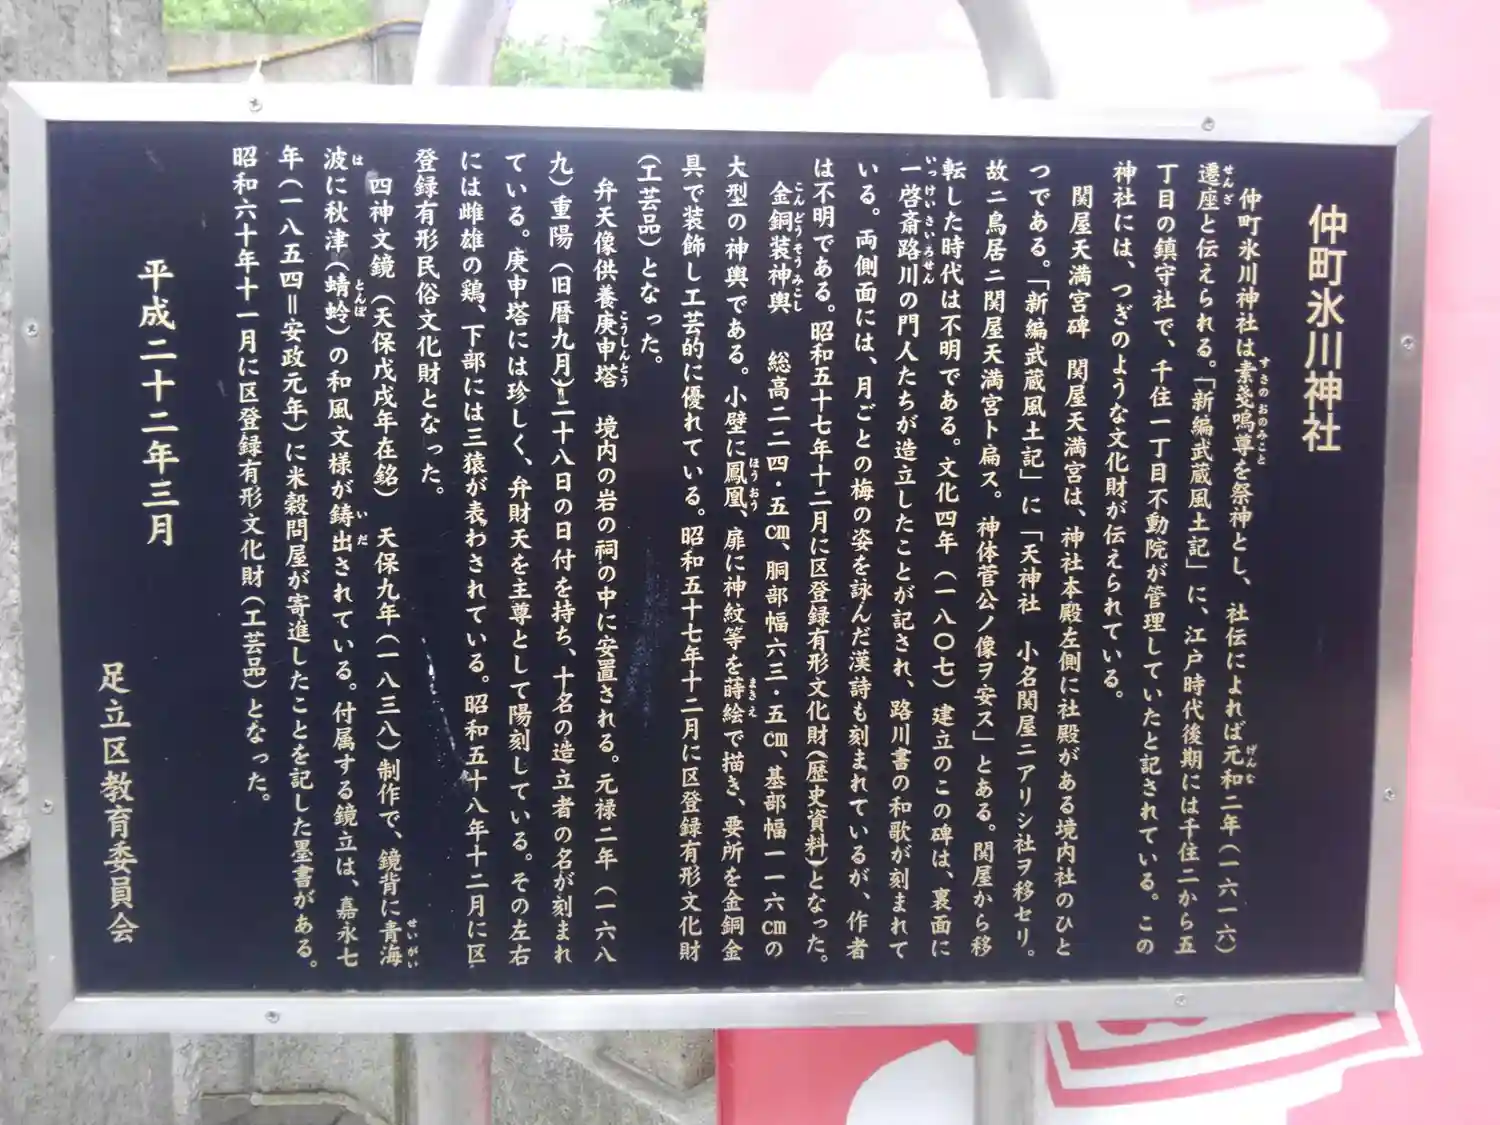 仲町氷川神社
仲町氷川神社は素戔嗚尊を祭神とし、社伝によれば元和二年(一六一六)
遷座と伝えられる。「新編武蔵風土記」に、江戸時代後期には千住二から五
丁目の鎮守社で、千住一丁目不動院が管理していたと記されている。この
神社には、つぎのような文化財が伝えられている。
関屋天満宮碑 関屋天満宮は、神社本殿左側に社殿がある境内社のひと
つである。「新編武蔵風土記」に「天神社 小名関屋ニアリシ社ヲ移セリ。
故ニ鳥居ニ関屋天満宮ト扁ス。神体菅公ノ像ヲ安ス」とある。関屋から移
転した時代は不明である。文化四年(一八〇七)建立のこの碑は、裏面に
一啓斎路川の門人たちが造立したことが記され、路川書の和歌が刻まれて
いる。両側面には、月ごとの梅の姿を詠んだ漢詩も刻まれているが、作者
は不明である。昭和五十七年十二月に区登録有形文化財(歴史資料)となった。
金銅装神輿 総高二二四・五㎝、胴部幅六三・五㎝、基部幅一一六㎝の
大型の神輿である。小壁に鳳凰、扉に神紋等を蒔絵で描き、要所を金銅金
具で装飾し工芸的に優れている。昭和五十七年十二月に区登録有形文化財
(工芸品)となった。
弁天像供養庚申塔 境内の岩の祠の中に安置される。元禄二年(一六八
九)重陽(旧暦九月)二十八日の日付を持ち、十名の造立者の名が刻まれ
ている。庚申塔には珍しく、弁財天を主尊として陽刻している。その左右
には雌雄の鶏、下部には三猿が表わされている。昭和五十八年十二月に区
登録有形民俗文化財となった。
四神文鏡(天保戊戌年在銘) 天保九年(一八三八)制作で、鏡背に青海
波に秋津(蜻蛉)の和風文様が鋳出されている。付属する鏡立は、嘉永七
年(一八五四＝安政元年)に米穀問屋が寄進したことを記した墨書がある。
昭和六十年十一月に区登録有形文化財(工芸品)となった。
平成二十二年三月
足立区教育委員会